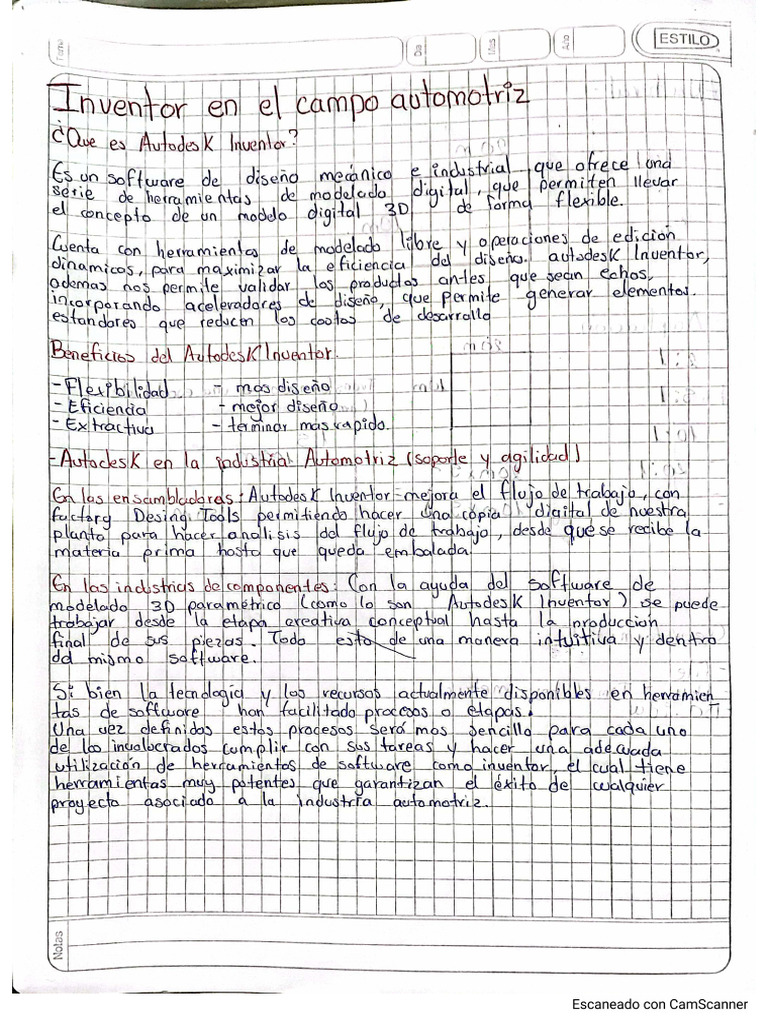 Tema
Dia
Mes
Año
ESTILO
Inventor en el campo automotriz
¿Que es Autodesk Inventor?
Es un software de diseño mecánico e industrial, que ofrece una
serie de herramientas de modelado digital, que permiten llevar
el concepto de un modelo digital 3D de forma flexible.
Cuenta con herramientas de modelado libre y operaciones de edición
dinamicos, para maximizar la eficiencia del diseño. autodesk Inventor,
ademas nos permite validar los productos antes que sean echos,
incorporando aceleradores de diseño, que permite generar elementos.
estandores que reducen los costos de desarrollo
Beneficios del Autodesk Inventor.
- Flexibilidad - mas diseño
- Eficiencia - mejor diseño
- Extractiva - terminar mas rapido.
- Autodesk en la industria Automotriz (soporte y agilidad)
En las ensambladoras: Autodesk Inventor mejora el flujo de trabajo, con
factory Desing Tools permitiendo hacer una copia digital de nuestra
planta para hacer analisis del flujo de trabajo, desde que se recibe la
materia prima hasta que queda embalada.
En las industrias de componentes: Con la ayuda del software de
modelado 3D paramétrico (como lo son Autodesk Inventor) se puede
trabajar desde la etapa creativa conceptual hasta la produccion
final de sus piezas. Todo esto de una manera intuitiva y dentro
del mismo software.
Si bien la tecnologia y los recursos actualmente disponibles en herramien
tas de software han facilitado procesos o etapas.
Una vez definidos estos procesos será mas sencillo para cada uno
de los involucrados cumplir con sus tareas y hacer una adecuada
utilización de herramientas de software como inventor, el cual tiene
herramientas muy potentes que garantizan el éxito de cualquier
proyecto asociado a la industria automotriz.
Notas
Escaneado con CamScanner